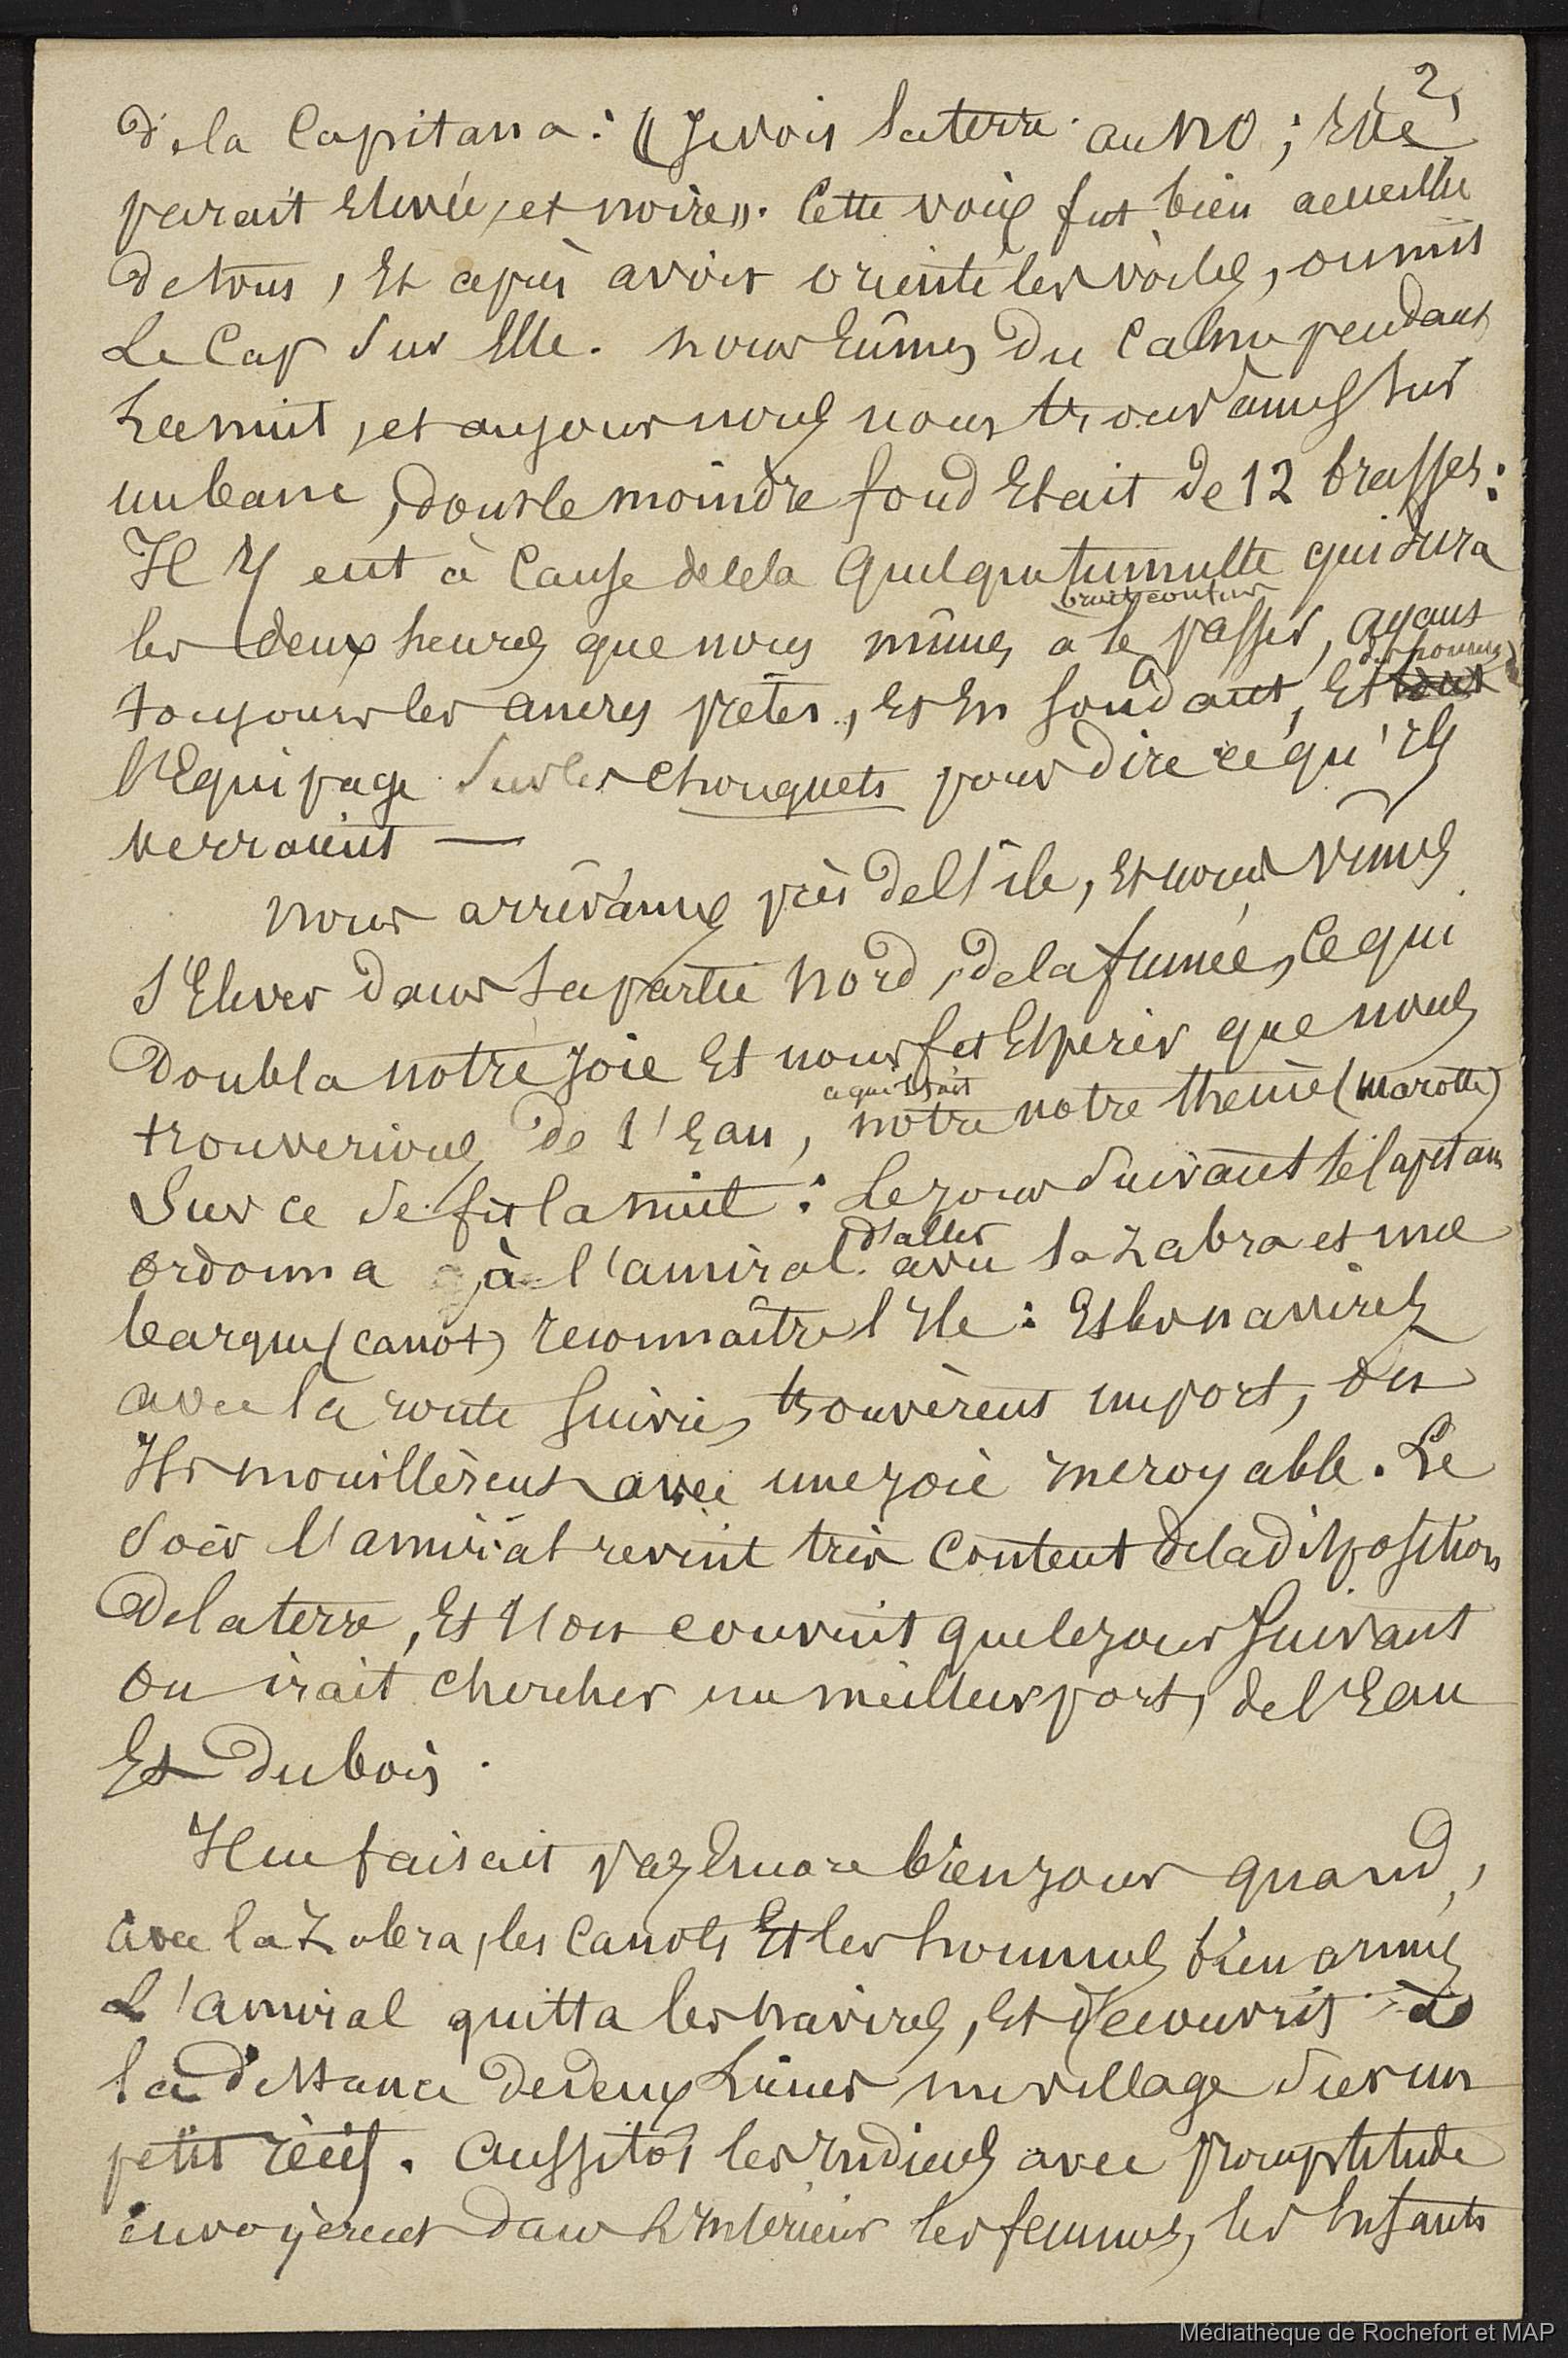 2,
de la Capitana : « Je vois la terre au NO ; Elle
parait Elevée, et noire ». Cette voix fut bien accueillie
de tous, Et après avoir orienté les voiles, on mit
Le Cap sur Elle. nous Eûmes Du Calme pendant
La nuit, et au jour nous nous trouvâmes sur
un banc, dont le moindre fond Etait de 12 brasses :
Il Y eut à Cause de cela Quelque tumulte qui dura
bruit confus
les deux heures que nous mîmes à le passer, ayant
des hommes
toujours les ancres prêtes, Et En Sondant, Et tout
l'Equipage sur les Chouquets pour dire ce qu'ils
verraient —
nous arrivâmes près de l'île, Et nous vîmes
s'Elever dans La partie Nord, de la fumée, Ce qui
Doubla notre joie Et nous fit Espérer que nous
ce qui était
trouverions de l'Eau, notre notre theme (marotte)
Sur ce se fit la nuit : Le jour suivant le Capitan
d'aller
ordonna à l'amiral avec la Zabra et une
barque (canot) reconnaître l'Ile : Et les navires
avec la route suivie, trouvèrent un port, où
Ils mouillèrent avec une joie incroyable. Le
soir l'amiral revint très Content de la disposition
De la terre, Et l'on convint que le jour Suivant
On irait Chercher un meilleur port, de l'Eau
Et Du bois.
Il ne faisait pas Encore bien jour quand,
avec la Zabra, les Canots Et les hommes bien armés
L'amiral quitta les navires, Et découvrit à
la distance de deux Lieues un village sur un
petit récif. Aussitôt les Indiens avec promptitude
envoyèrent dans L'Intérieur les femmes, les Enfants
Médiathèque de Rochefort et MAP